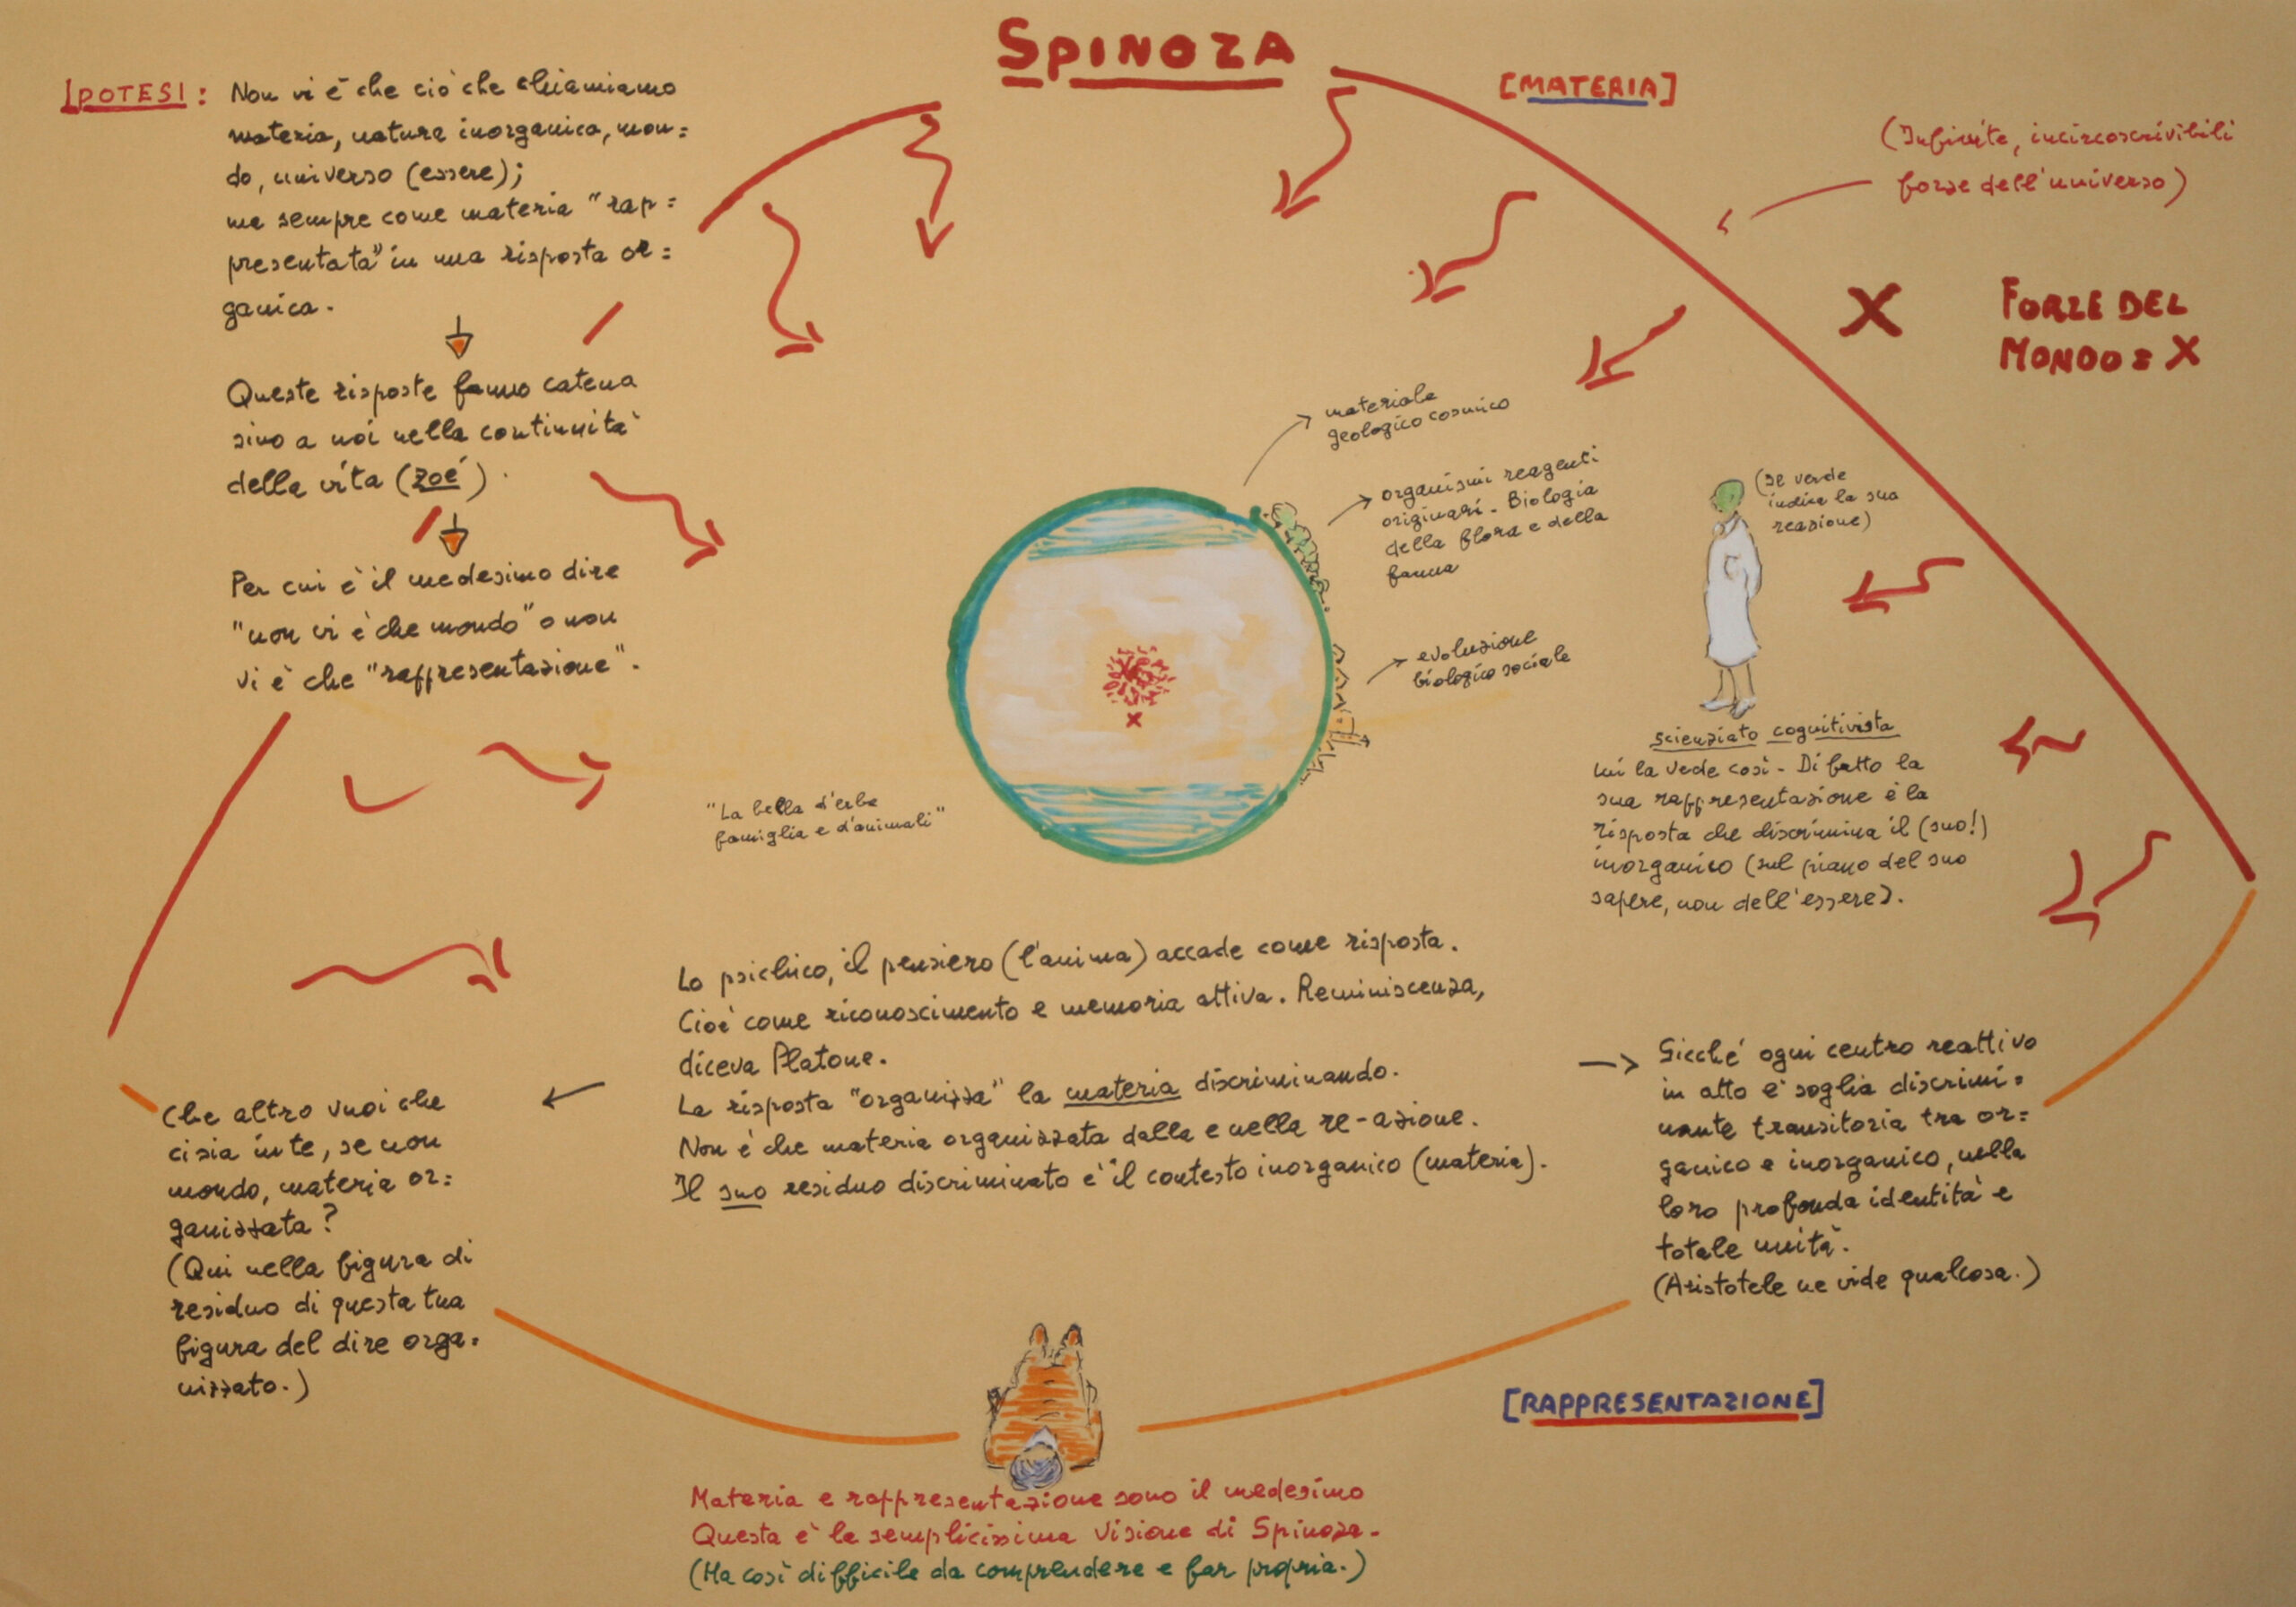 SPINOZA
IPOTESI: Non vi è che ciò che chiamiamo
materia, natura inorganica, mon=
do, universo (essere);
ma sempre come materia "rap=
presentata" in una risposta or=
ganica.
Queste risposte fanno catena
sino a noi nella continuità
della vita (zoé).
Per cui è il medesimo dire
"non vi è che mondo" o non
vi è che "rappresentazione".
[MATERIA]
(Infinite, incircoscrivibili
forze dell'universo)
X
FORZE DEL
MONDO = X
materiale
geologico cosmico
organismi reagenti
originari. Biologia
della flora e della
fauna
evoluzione
biologico sociale
x
(Il verde
indica la sua
reazione)
scienziato cognitivista
lui la vede così. Di fatto la
sua rappresentazione è la
risposta che discrimina il (suo!)
inorganico (sul piano del suo
sapere, non dell'essere).
"La bella d'erbe
famiglia e d'animali"
Lo psichico, il pensiero (l'anima) accade come risposta.
Cioè come riconoscimento e memoria attiva. Reminiscenza,
diceva Platone.
La risposta "organizza" la materia discriminando.
Non è che materia organizzata dalla e nella re-azione.
Il suo residuo discriminato è il contesto inorganico (materia).
Che altro vuoi che
ci sia in te, se non
mondo, materia or=
ganizzata?
(Qui nella figura di
residuo di questa tua
figura del dire orga=
nizzato.)
Sicché ogni centro reattivo
in atto è soglia discrimi=
nante transitoria tra or=
ganico e inorganico, nella
loro profonda identità e
totale unità.
(Aristotele ne vide qualcosa.)
[RAPPRESENTAZIONE]
Materia e rappresentazione sono il medesimo
Questa è la semplicissima visione di Spinoza.
(Ma così difficile da comprendere e far propria.)